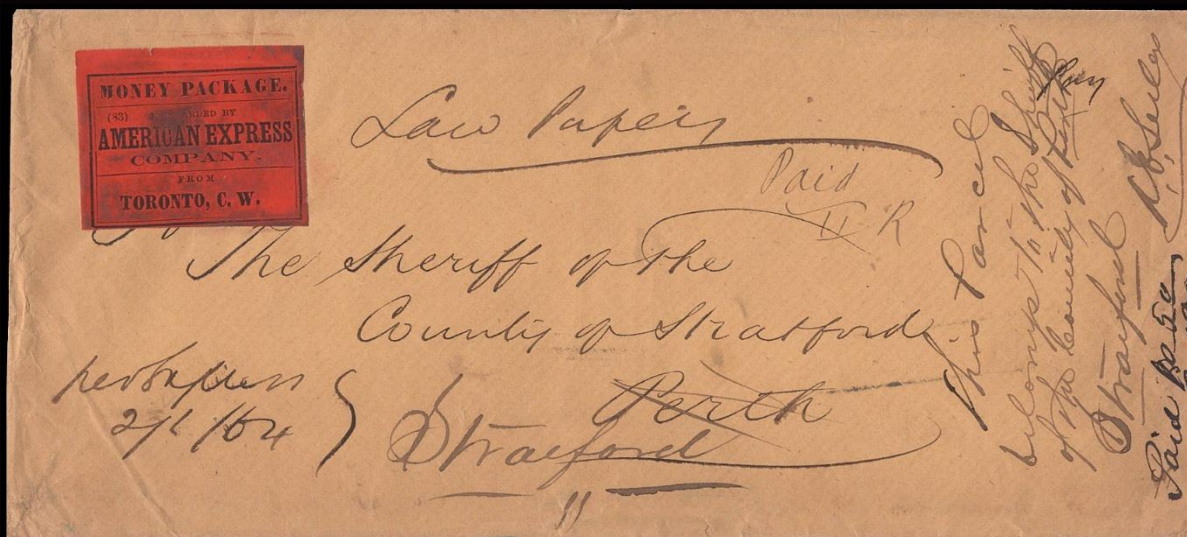 MONEY PACKAGE.
(83) FORWARDED BY
AMERICAN EXPRESS
COMPANY,
FROM
TORONTO, C. W.
Law Papers
Paid
R
The Sheriff of the
County of Stratford
Perth
Stratford
per Express
This Parcel
belongs to the Sheriff
of the County of Perth
Stratford
Paid